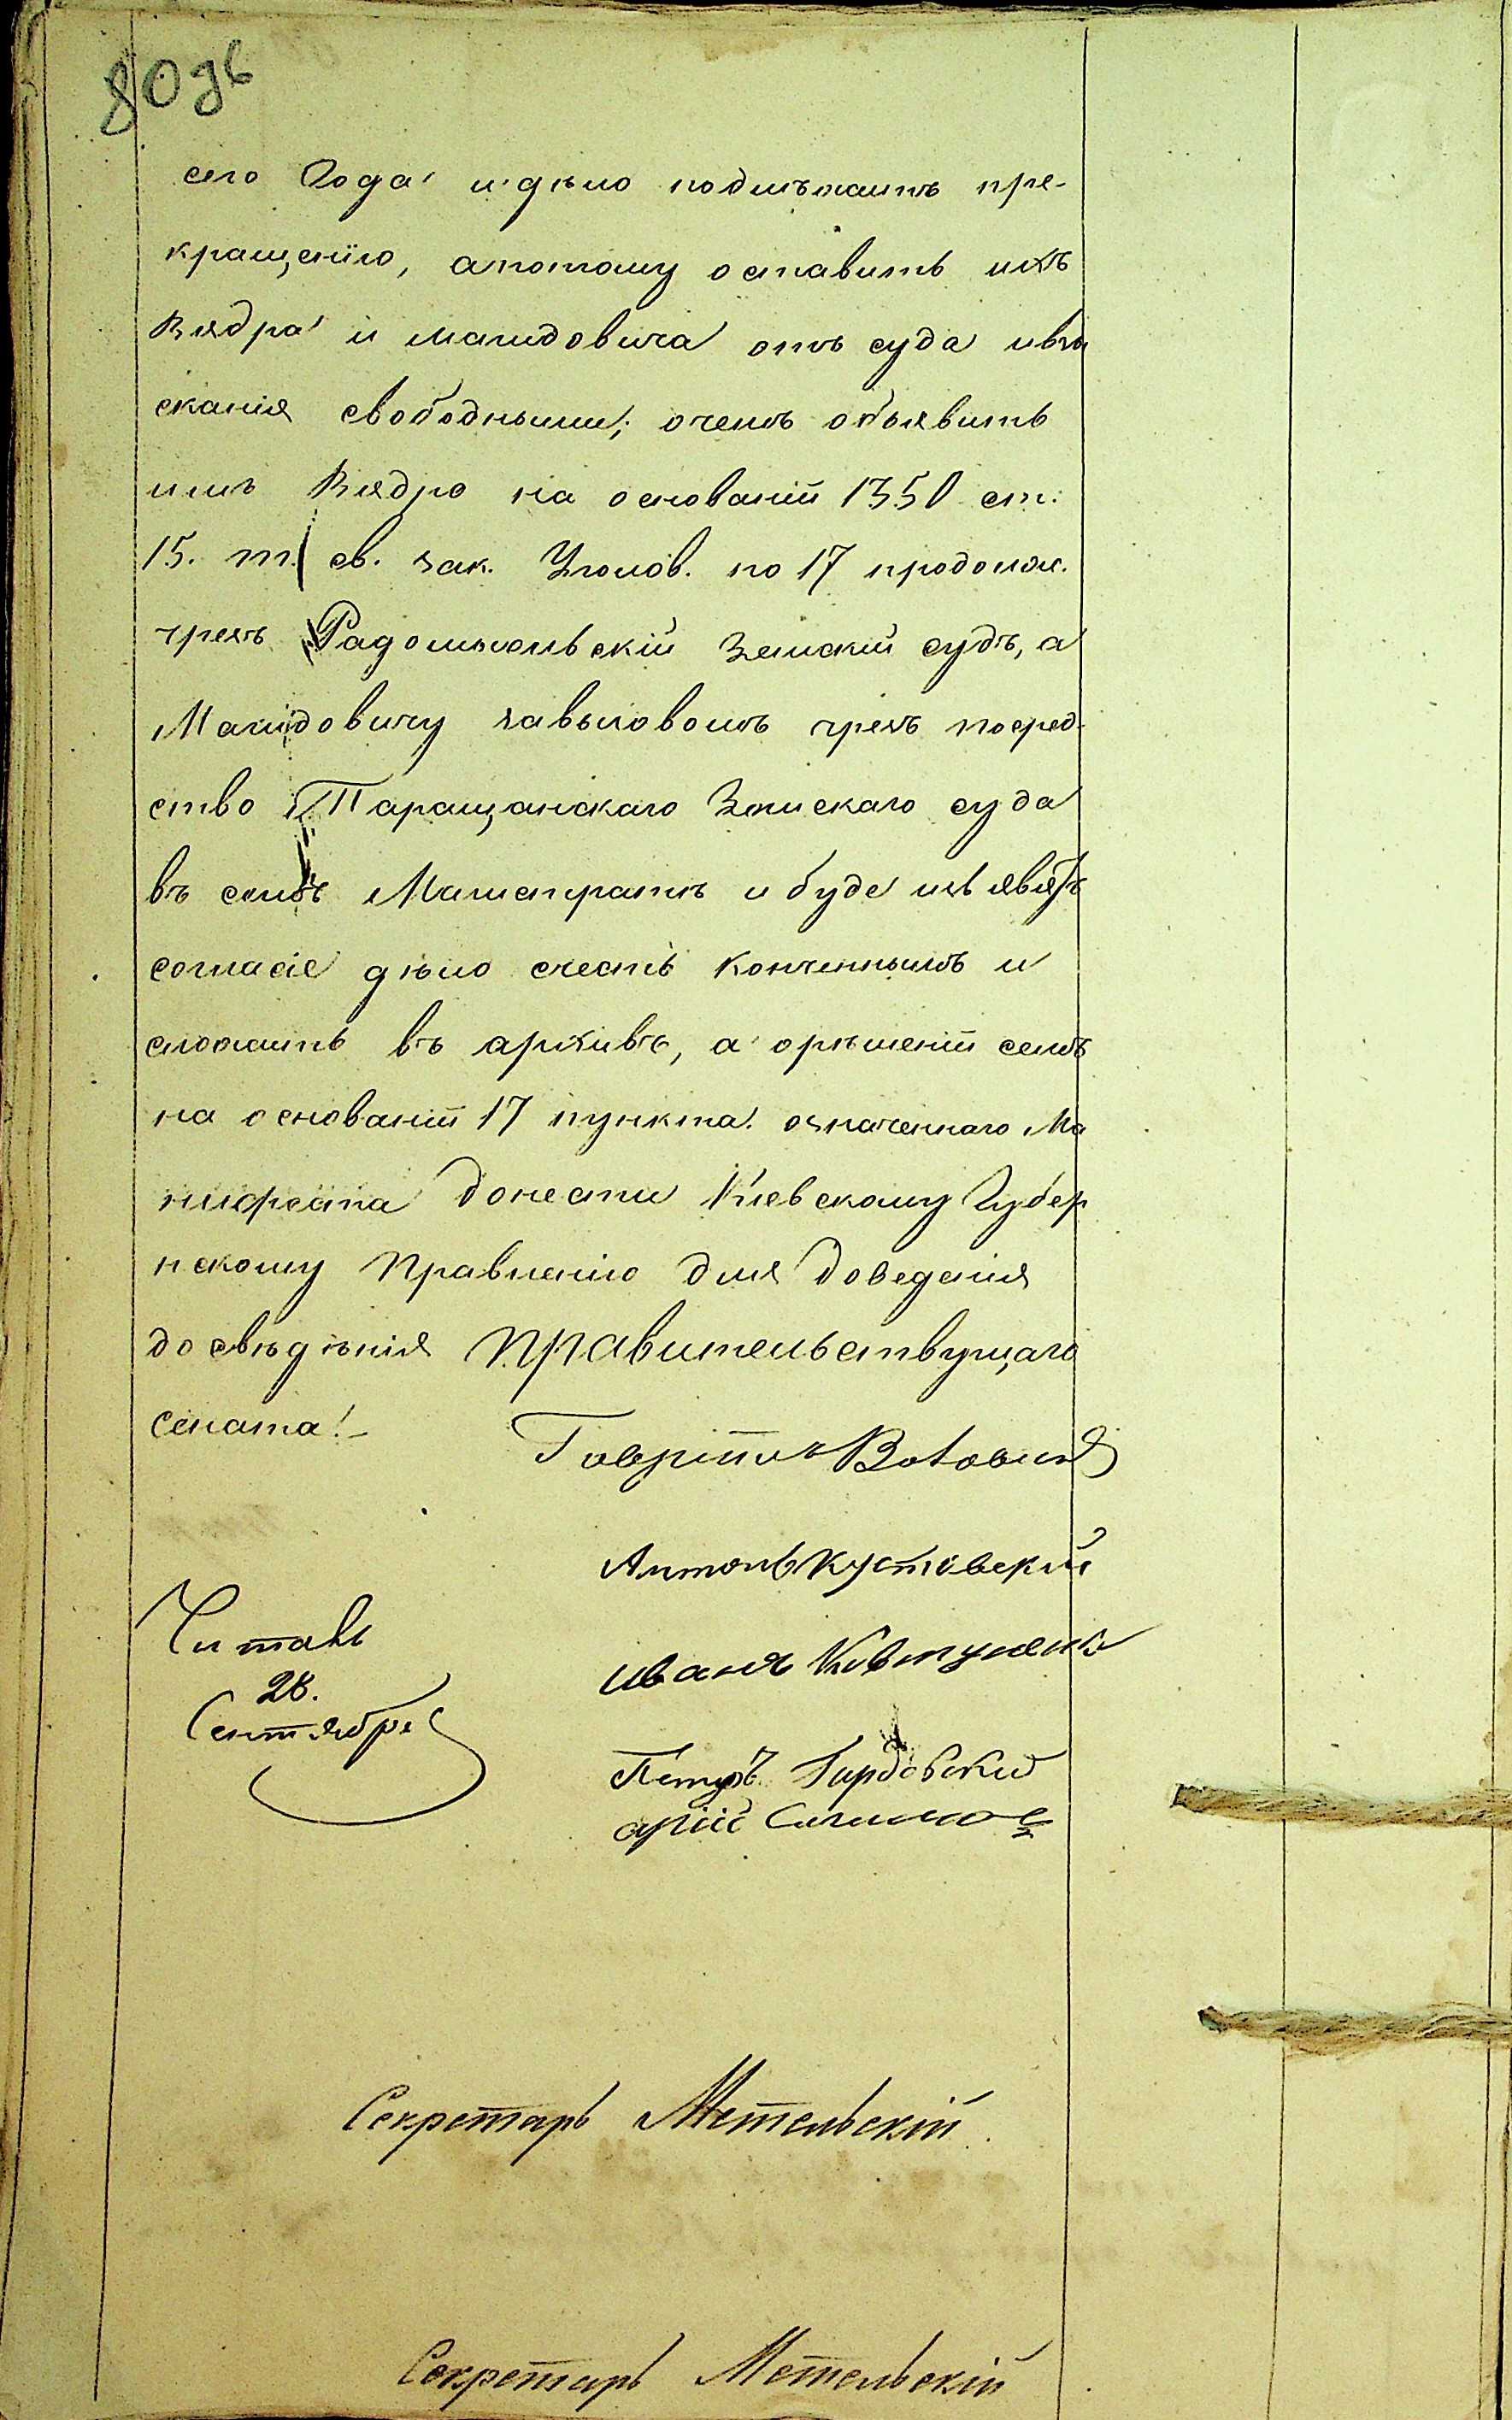 80 дв
сего Года и дѣло подлѣжитъ пре-
кращенію, а потому оставить ихъ
Вядра и Магидовича отъ суда и взы
сканія свободными; о чемъ объявить
имъ Вядро на основаніи 1350 ст.
15. т. св. зак. Уголов. по 17 продолж.
чрезъ Радомысльскій Земскій судъ, а
Магидовичу за вызовомъ чрезъ посред-
ство Таращанскаго Земскаго суда
въ семъ Магистратѣ и буде изъявятъ
согласіе дѣло счесть конченнымъ и
сложить въ архивъ, а о рѣшеніи семъ
на основаніи 17 пункта означеннаго Ма
нифеста донести Кіевскому Губер
нскому Правленію для доведенія
до свѣдѣнія Правительствующаго
Сената!-
Гавріилъ
Антонъ Кустовскій
Читавъ
28.
Сентября
Иванъ Ковтуненко
Петръ Гирдовскій
Секретарь Метельскій
Секретарь Метельскій